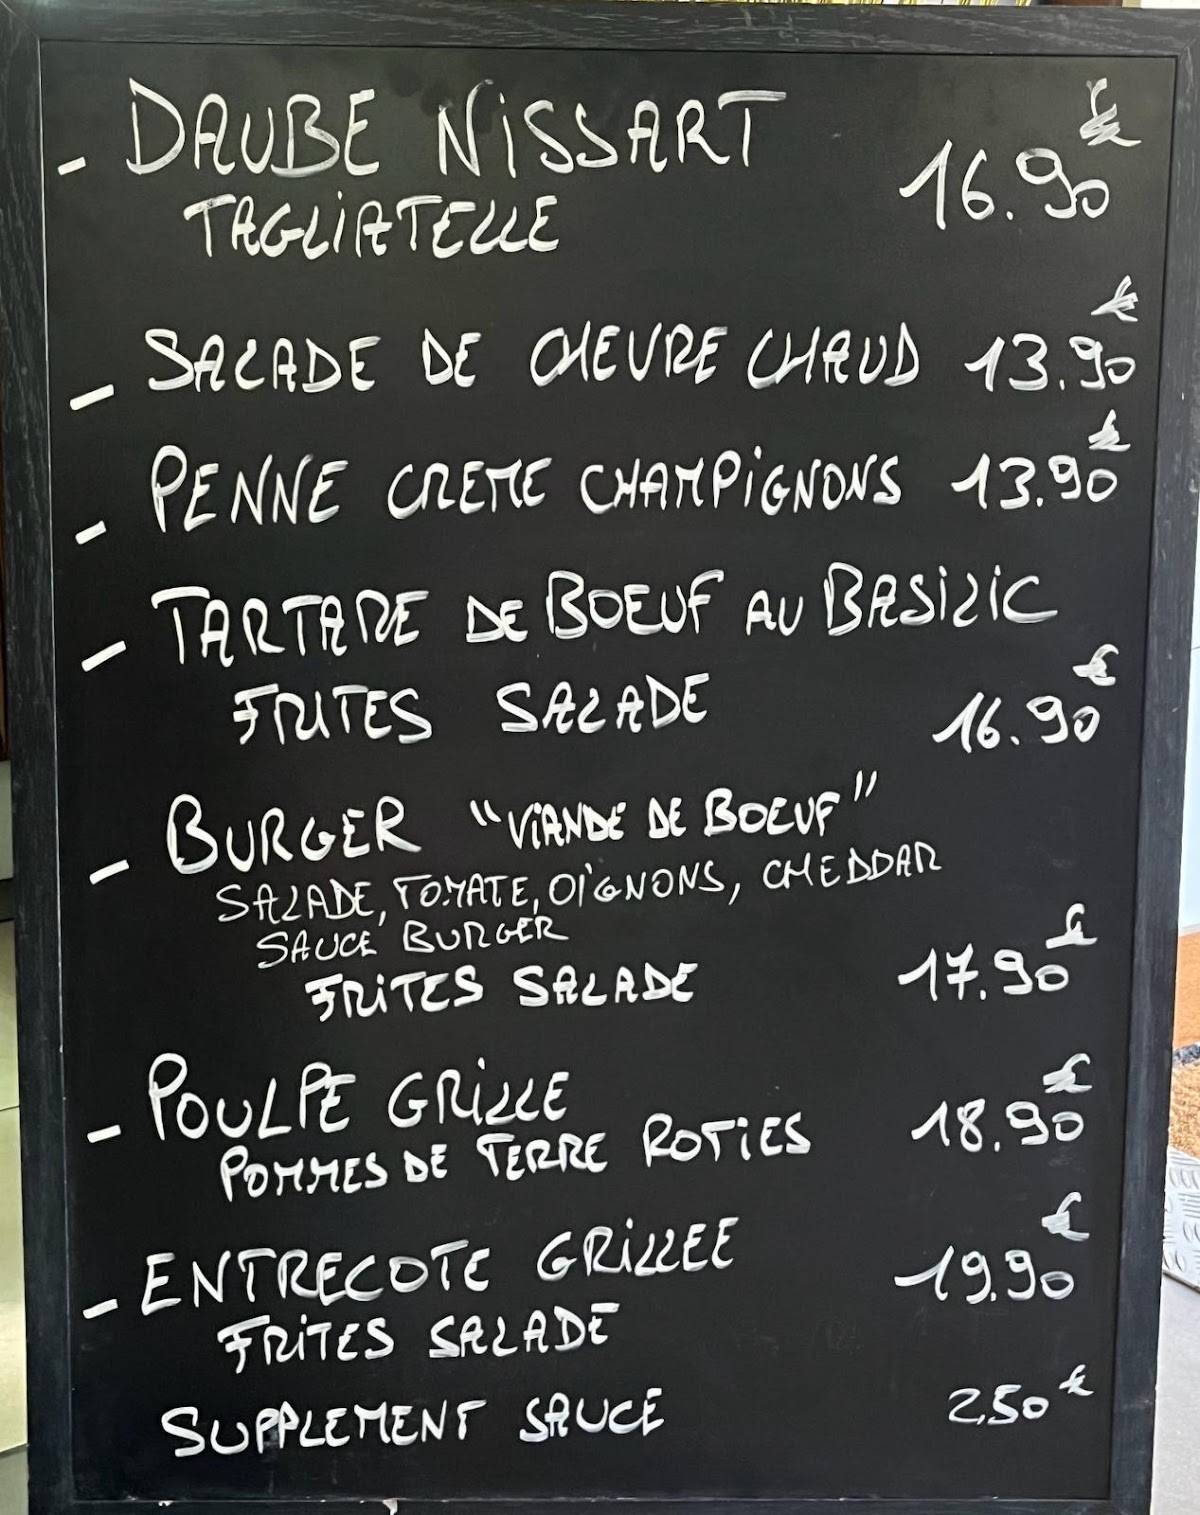 - DAUBE NISSART 16.90€
TAGLIATELLE
- SALADE DE CHEVRE CHAUD 13.90€
- PENNE CREME CHAMPIGNONS 13.90€
- TARTARE DE BOEUF AU BASILIC
FRITES SALADE 16.90€
- BURGER "VIANDE DE BOEUF"
SALADE, TOMATE, OIGNONS, CHEDDAR
SAUCE BURGER
FRITES SALADE 17.90€
- POULPE GRILLE 18.90€
POMMES DE TERRE ROTIES
- ENTRECOTE GRILLEE 19.90€
FRITES SALADE
SUPPLEMENT SAUCE 2,50€